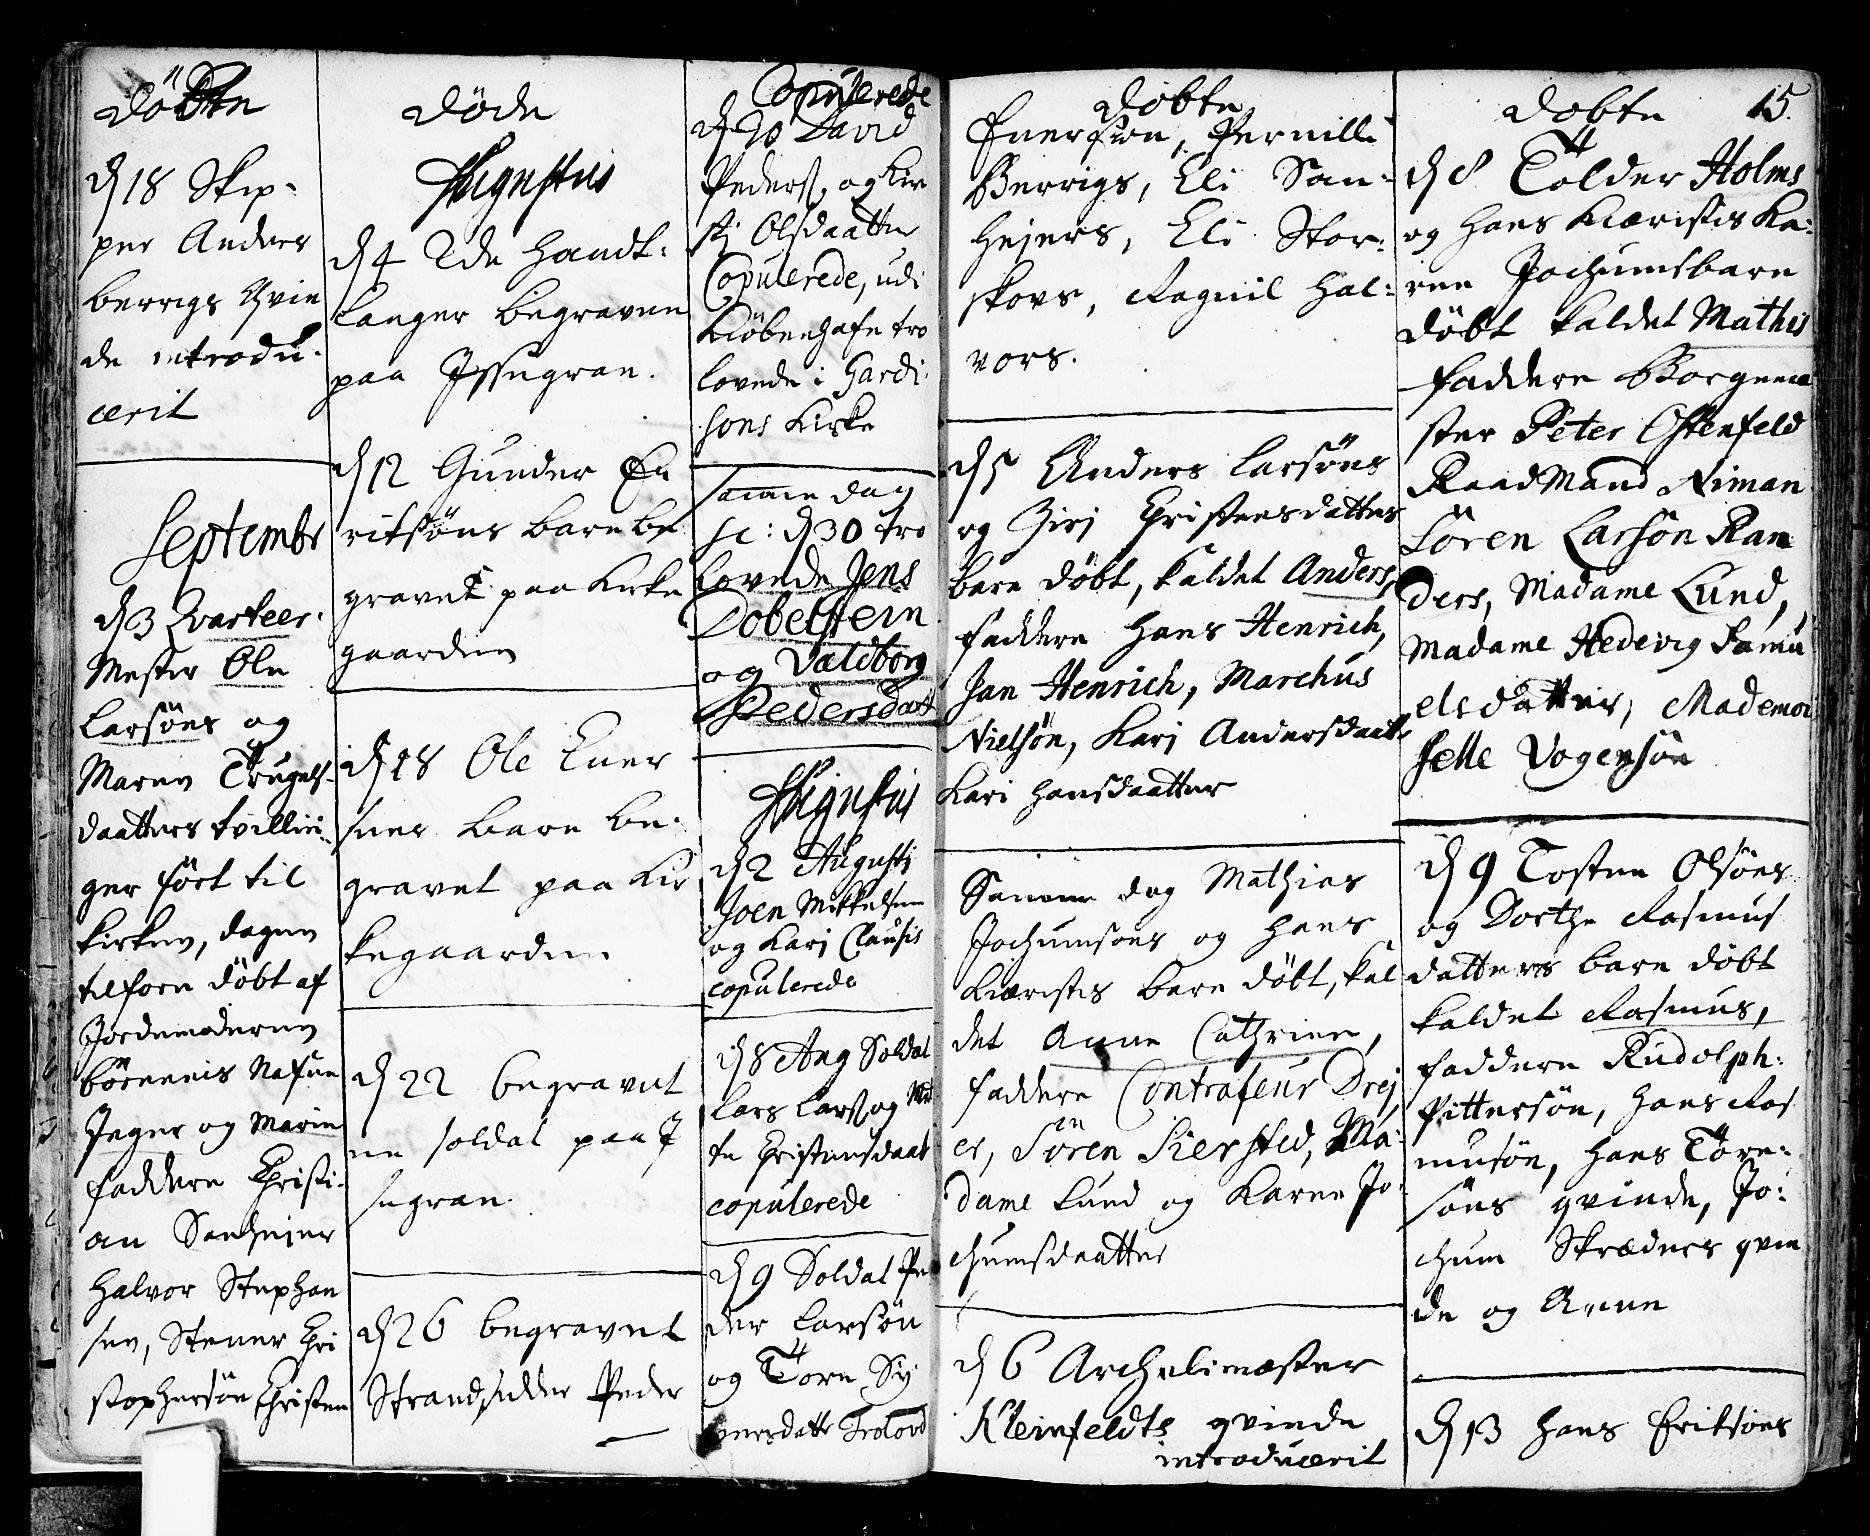 Döbte
d 18 Skip-
per Anders
berrigs Qvin
de introdu-
cerit
Septembr
d 3 Qvarteer-
Mester Ole
Larsöns og
Maren Trugels-
daatters tvillin-
ger fört til
Kirken, dagen
tilforn döbt af
Jordemoderen
börnenis Nafne
Jeger og Maren
faddere Christi-
an Sanhejer
Halvor Stephan
sen, Stener Chri
stophersön Christen
Döde
Augustus
d 4 Ide Handt-
langer begraven
paa Issegran.
d 12 Gunder En
ritsöns barn be
gravet paa Kirke
gaarden
d 18 Ole Euer
snes barn be-
gravet paa Kir
kegaarden
d 22 begravet
en soldat paa I
segran.
d 26 begravet
Strandsidder Peder
Copulerede
d 30 David
Peders. og Kir
sti Olsdaatter
Copulerede, udi
Kiöbenhafn tro
lovede i Gardi-
sons Kirke
Samme dag
sc: d 30 tro
lovede Jens
Dobelstein
og Valdborg
Pedersdaat
Augustus
d 2 Augusti
Joen Mikkelsen
og Kari Clausis
copulerede
d 8 Aug Soldat
Lars Lars. og Me
te Christensdaat
copulerede
d 9 Soldat Pe
der Larsön
og Torn Sy
versdatt Trolovd
Döbte
Enersson, Pernille
Berrigs, Eli San-
hejers, Eli Stor-
skovs, Ragnil Hal-
vors.
d 5 Anders Larsöns
og Siri Christensdatters
barn döbt, kaldet Anders,
faddere Hans Henrich,
Jan Henrich, Marchus
Nielsön, Kari Andersdaatt
Kari Hansdaatter
Samme dag Mathias
Jochumsons og Hans
Kiæristes barn döbt, kal
det Anne Cathrine,
faddere Contrafeur Drej
er, Sören Siersted, Ma-
dame Lund og Karen Jo-
chumsdaatter
d 6 Archelimæster
Kleinfeldts qvinde
introducerit
Döbte 15.
d 8 Tolder Holms
og Hans Kiæristis Ka-
ren Jochums barn
döbt kaldet Mathis
faddere Borgeme
ster Peter Ostenfeld
Raadmand Niman
Sören Larsön Ran
ders, Madame Lund,
Madame Hedevig Samu
elsdatter, Mademoi
selle Vogensön
d 9 Tosten Olsöns
og Dorthe Rasmus
datters barn döbt
kaldet Rasmus,
faddere Rudolph
Pittersön, Hans Ras
musön, Hans Töre-
söns qvinde, Jo-
chum Skræders qvin
de og Anne
d 13 Hans Eritsöns